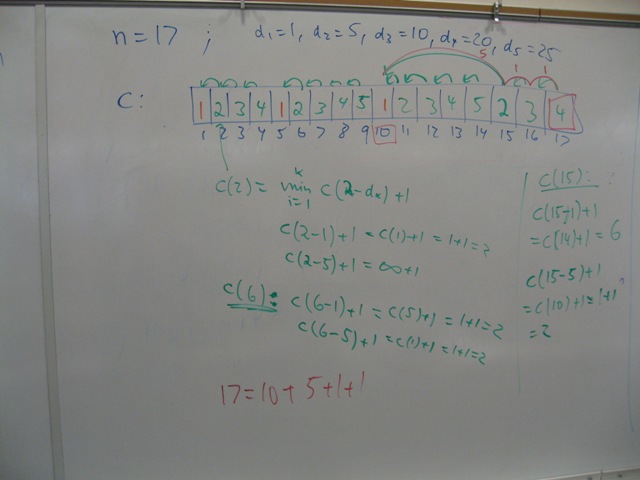 n=17 ; d₁=1, d₂=5, d₃=10, d₄=20, d₅=25
5 1 1
C: 1 2 3 4 1 2 3 4 5 1 2 3 4 5 2 3 4
1 2 3 4 5 6 7 8 9 10 11 12 13 14 15 16 17
C(2) = min C(2-dₖ)+1
k
i=1
C(2-1)+1 = C(1)+1 = 1+1=2
C(2-5)+1 = ∞+1
C(6): C(6-1)+1 = C(5)+1 = 1+1=2
C(6-5)+1 = C(1)+1 = 1+1=2
17=10+5+1+1
C(15):
C(15-1)+1
=C(14)+1 = 6
C(15-5)+1
=C(10)+1=1+1
=2